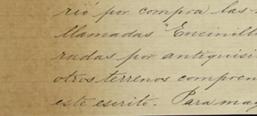 rió por compra las
llamadas Encinill
radas por antiquisi
otros terrenos compren
este escrito. Para may